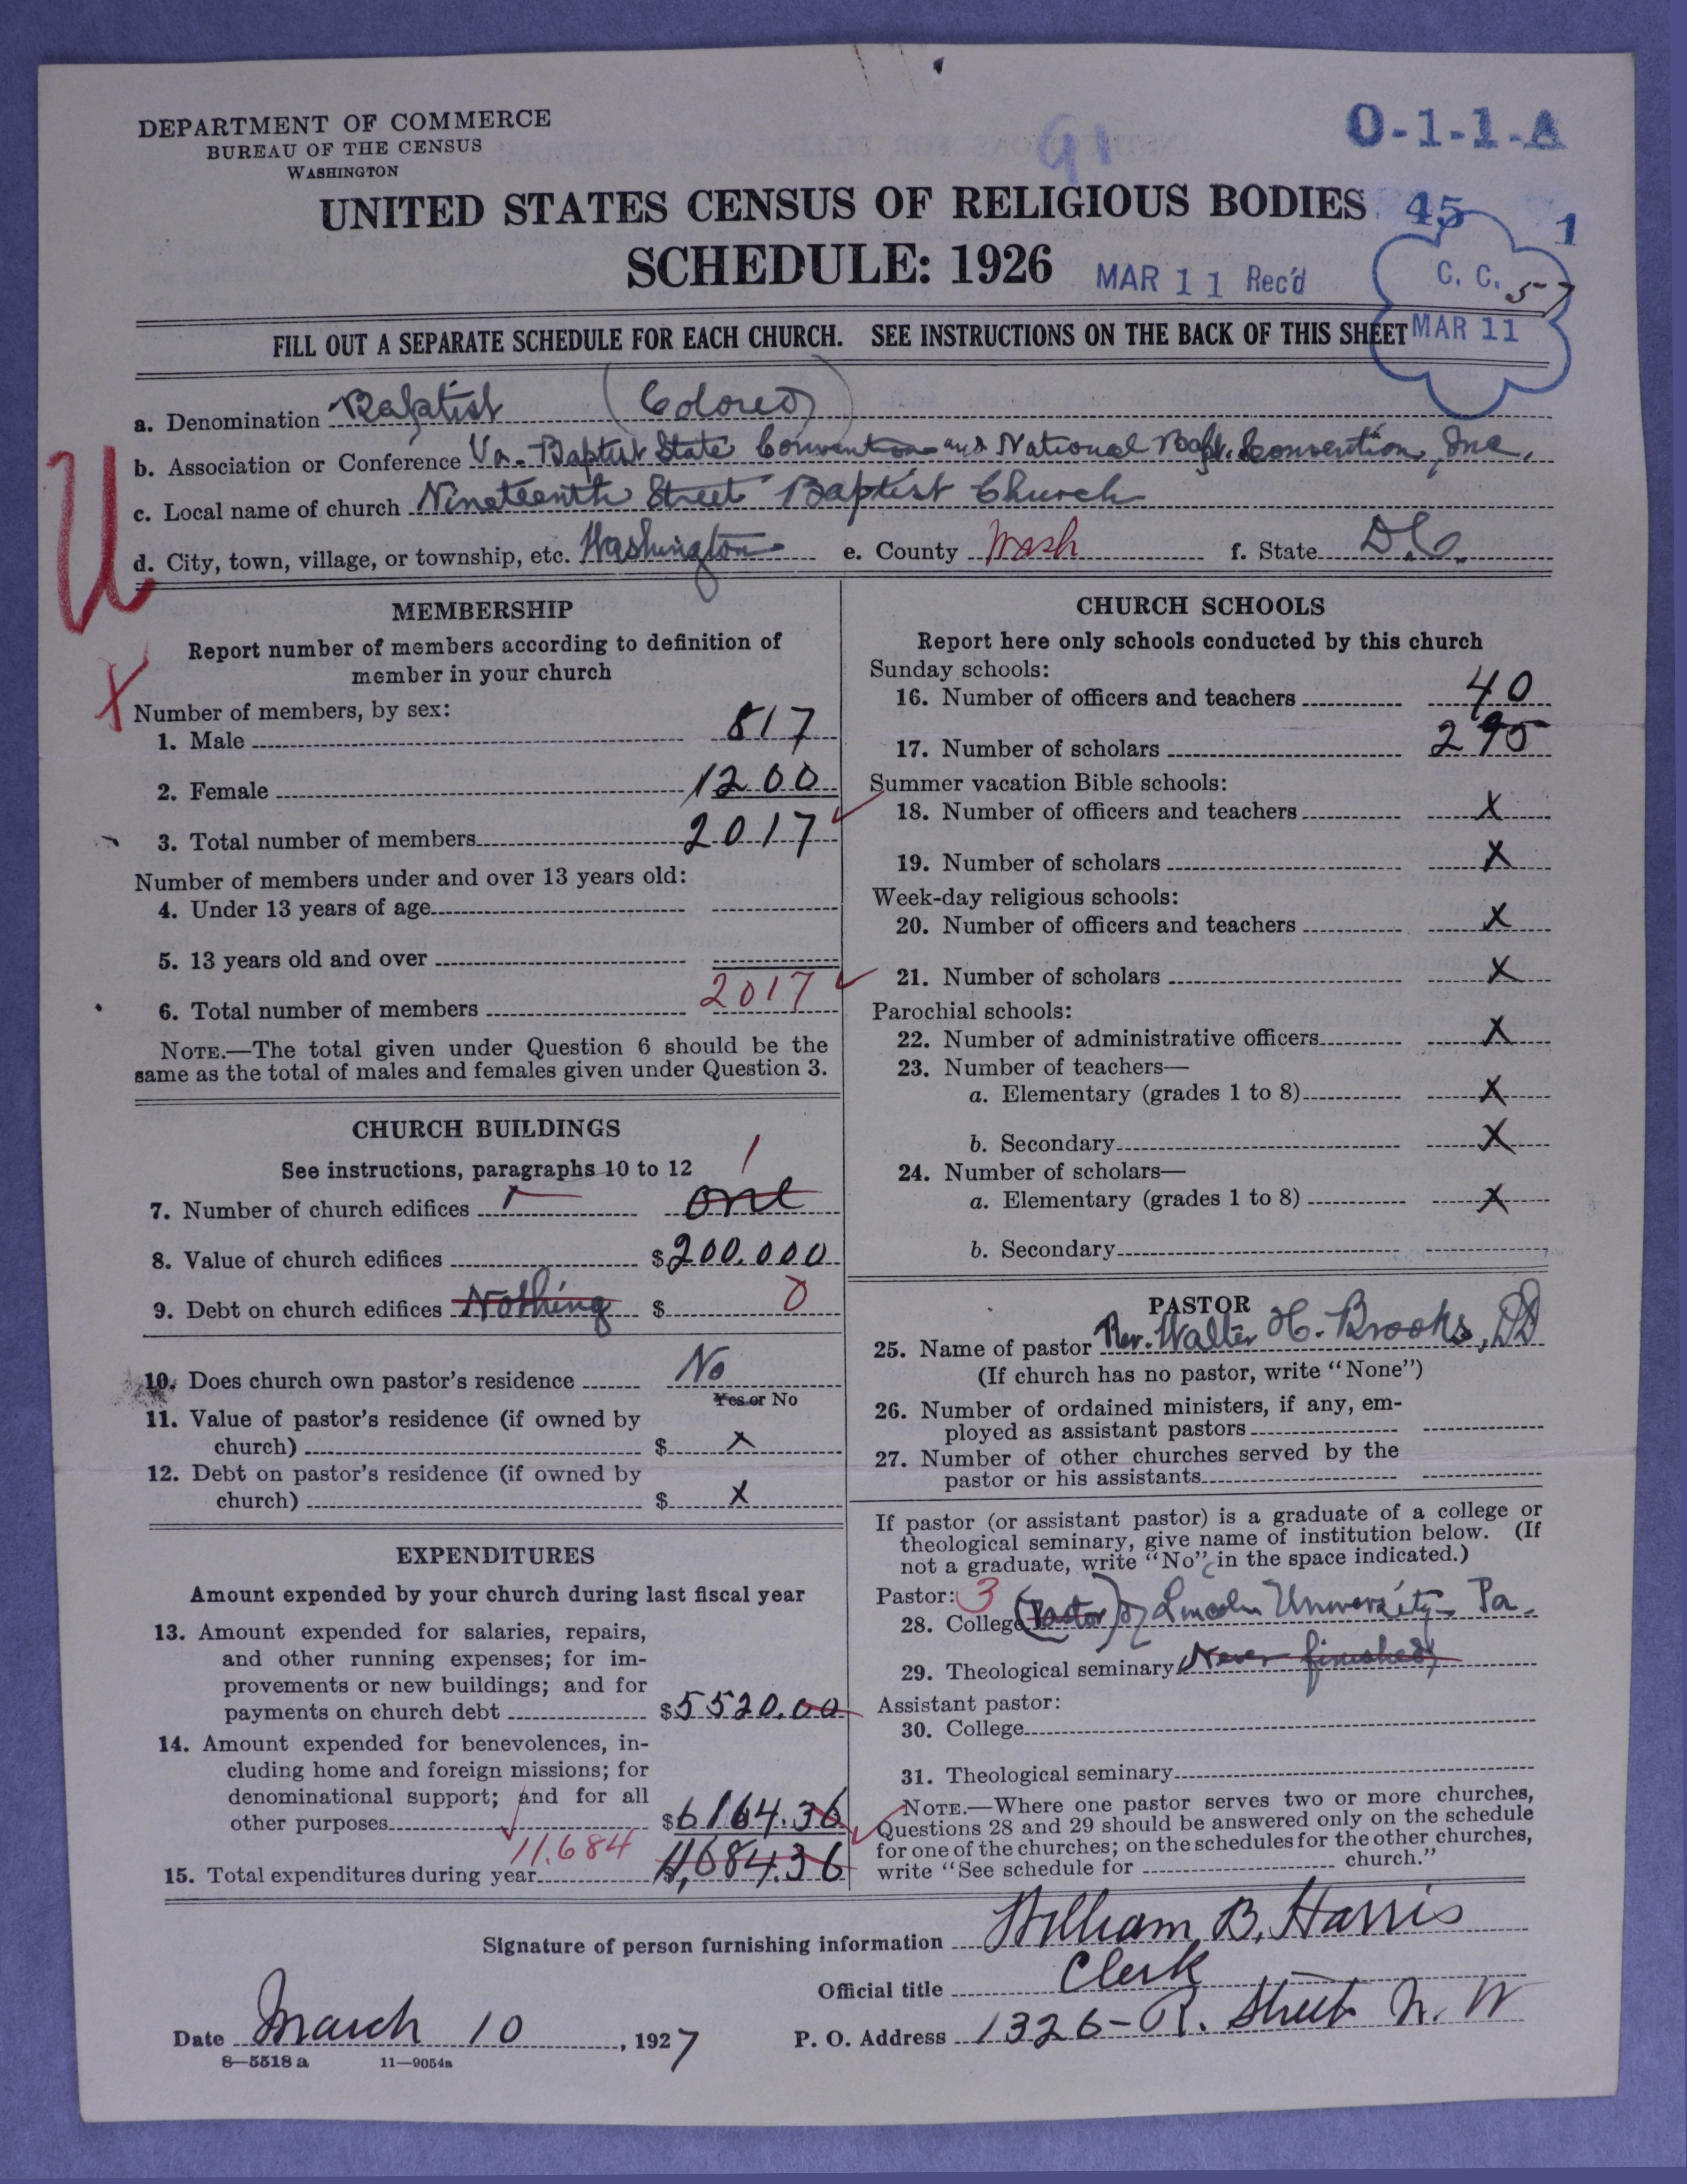 DEPARTMENT OF COMMERCE
BUREAU OF THE CENSUS
WASHINGTON
91
O-1-1-A
UNITED STATES CENSUS OF RELIGIOUS BODIES
45 1
SCHEDULE: 1926
MAR 11 Rec'd
C. C. 57
MAR 11
FILL OUT A SEPARATE SCHEDULE FOR EACH CHURCH. SEE INSTRUCTIONS ON THE BACK OF THIS SHEET
a. Denomination Baptist (Colored)
b. Association or Conference Va. Baptist State Convention and National Bapt. Convention, Inc.
c. Local name of church Nineteenth Street Baptist Church
d. City, town, village, or township, etc. Washington e. County Wash f. State D.C.
MEMBERSHIP
Report number of members according to definition of
member in your church
Number of members, by sex:
1. Male 817
2. Female 1200
3. Total number of members 2017
Number of members under and over 13 years old:
4. Under 13 years of age
5. 13 years old and over
6. Total number of members 2017
NOTE.—The total given under Question 6 should be the
same as the total of males and females given under Question 3.
CHURCH BUILDINGS
See instructions, paragraphs 10 to 12
1
7. Number of church edifices one
8. Value of church edifices $200.000
9. Debt on church edifices Nothing $ 0
10. Does church own pastor's residence No
Yes or No
11. Value of pastor's residence (if owned by
church) $ x
12. Debt on pastor's residence (if owned by
church) $ x
EXPENDITURES
Amount expended by your church during last fiscal year
13. Amount expended for salaries, repairs,
and other running expenses; for im-
provements or new buildings; and for
payments on church debt $5520.00
14. Amount expended for benevolences, in-
cluding home and foreign missions; for
denominational support; and for all
other purposes $6164.36
11.684
15. Total expenditures during year $11,684.36
CHURCH SCHOOLS
Report here only schools conducted by this church
Sunday schools:
16. Number of officers and teachers 40
17. Number of scholars 295
Summer vacation Bible schools:
18. Number of officers and teachers X
19. Number of scholars X
Week-day religious schools:
20. Number of officers and teachers X
21. Number of scholars X
Parochial schools:
22. Number of administrative officers X
23. Number of teachers—
a. Elementary (grades 1 to 8) X
b. Secondary X
24. Number of scholars—
a. Elementary (grades 1 to 8) X
b. Secondary
PASTOR
25. Name of pastor Rev. Walter H. Brooks, DD
(If church has no pastor, write "None")
26. Number of ordained ministers, if any, em-
ployed as assistant pastors
27. Number of other churches served by the
pastor or his assistants
If pastor (or assistant pastor) is a graduate of a college or
theological seminary, give name of institution below. (If
not a graduate, write "No" in the space indicated.)
Pastor: 3
28. College (Pastor) of Lincoln University Pa.
29. Theological seminary Never finished
Assistant pastor:
30. College
31. Theological seminary
NOTE.—Where one pastor serves two or more churches,
Questions 28 and 29 should be answered only on the schedule
for one of the churches; on the schedules for the other churches,
write "See schedule for church."
Signature of person furnishing information William B. Harris
Official title Clerk
Date March 10, 1927 P. O. Address 1326-R. Street N. W
8—5518 a 11—9054a